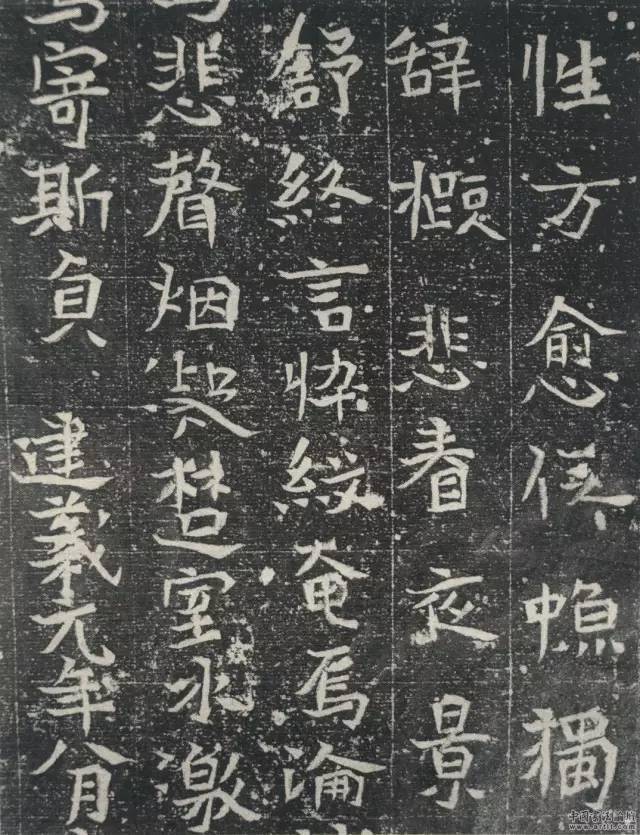 性方愈侯獨
辞悲春夜景
舒終言忰紋奄焉淪
悲聲烟楚室水激
寄斯負 建義元年八月